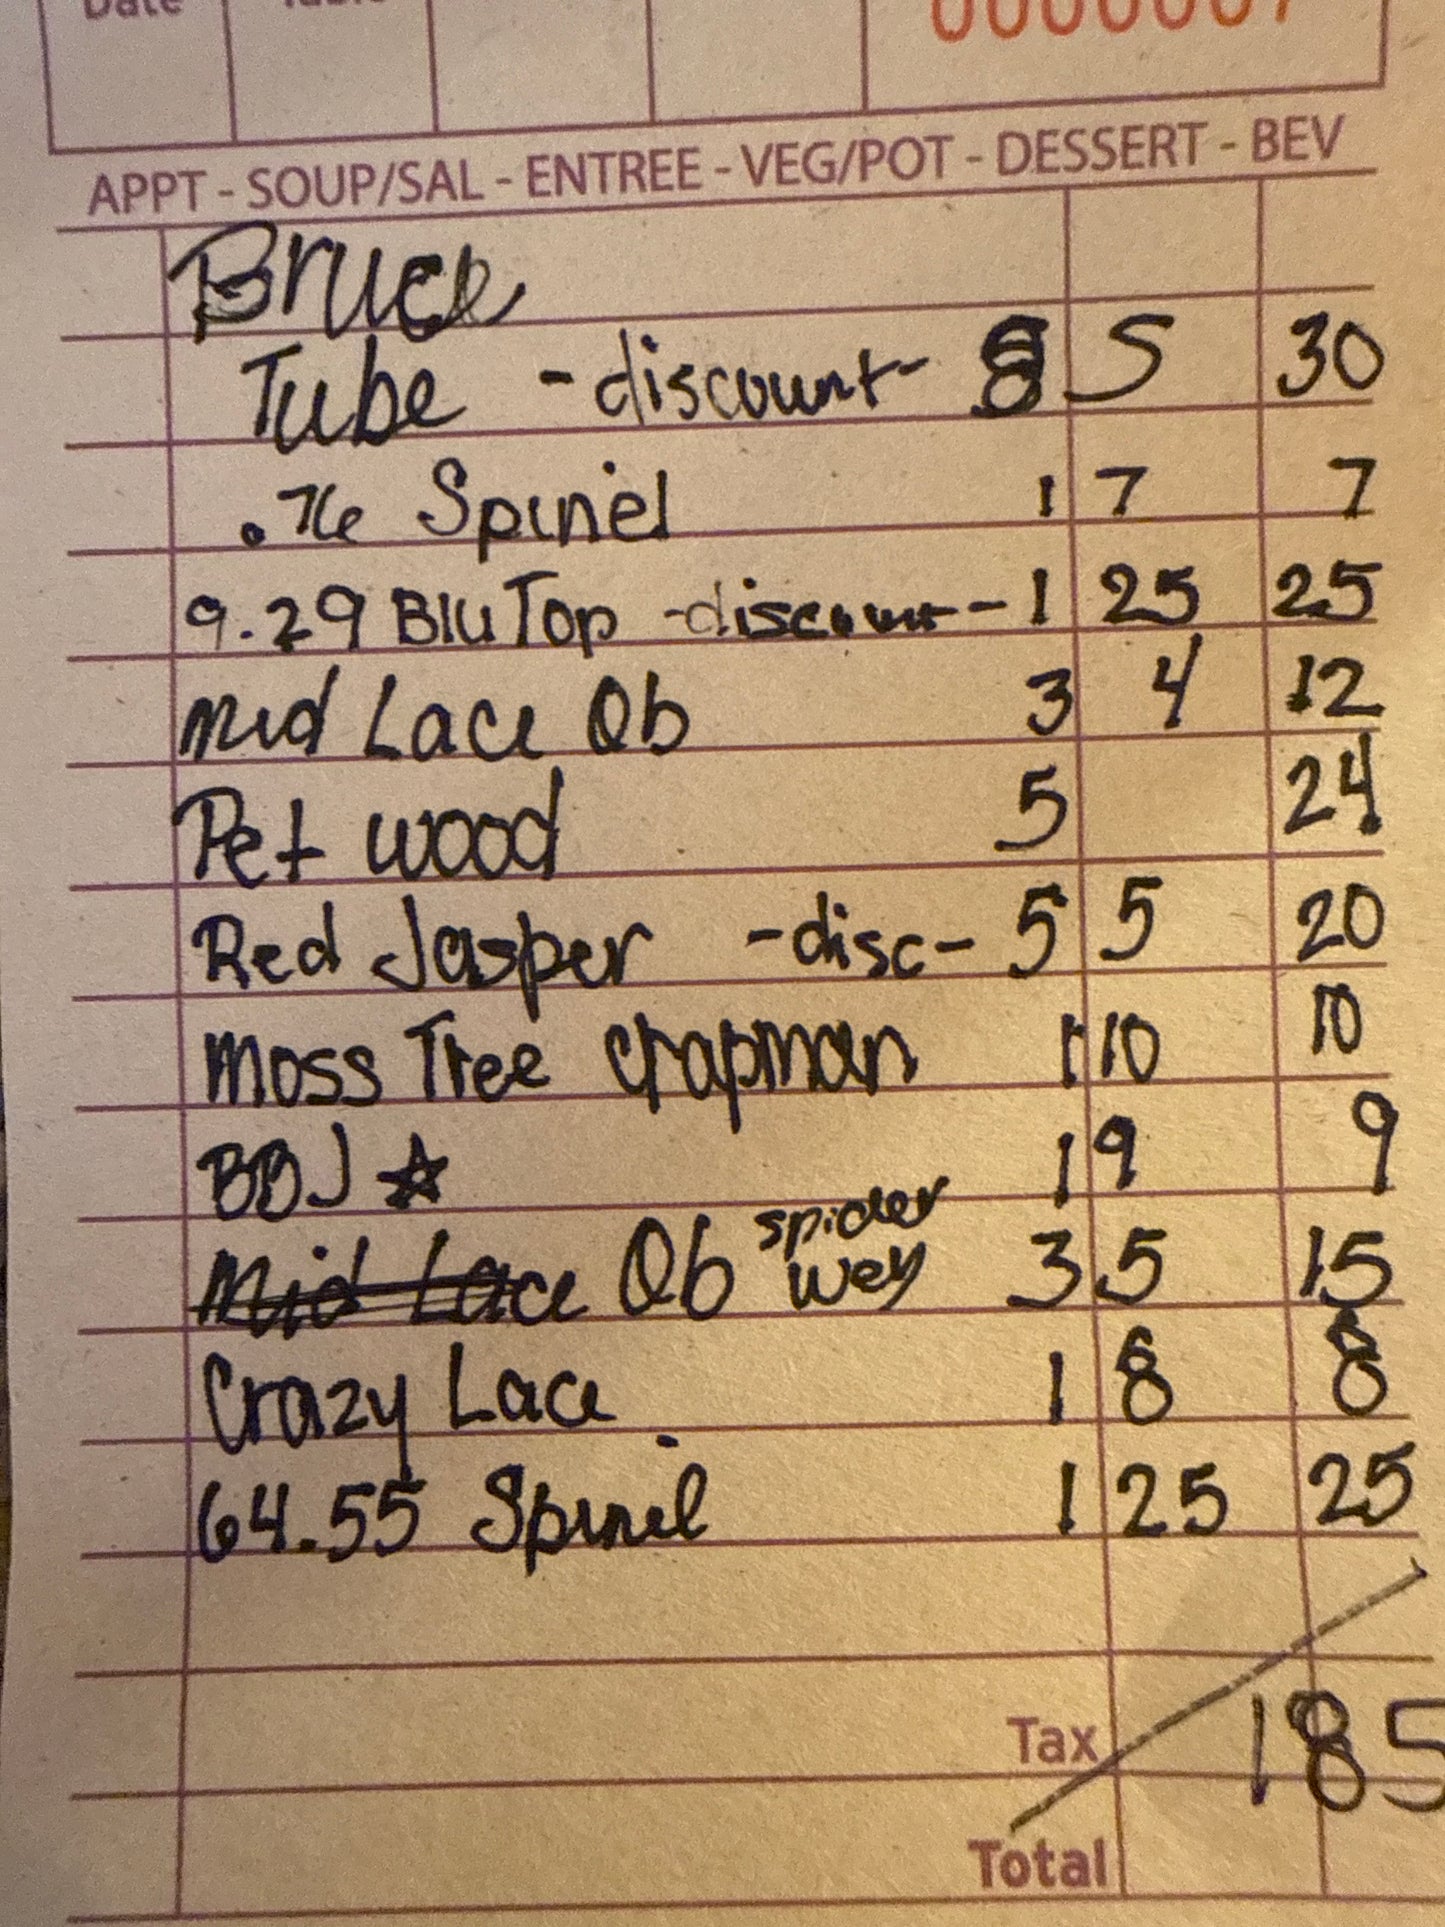 Date Table
APPT - SOUP/SAL - ENTREE - VEG/POT - DESSERT - BEV
Bruce
Tube - discount - 8 5 30
.76 Spinel 1 7 7
9.29 Blu Top - discount - 1 25 25
Mid Lace Qb 3 4 12
Pet wood 5 24
Red Jasper - disc - 5 5 20
Moss Tree Chapman 1 10 10
BBJ ☆ 1 9 9
Mid Lace Qb spider wey 3 5 15
Crazy Lace 1 8 8
64.55 Spinel 1 25 25
Tax 185
Total